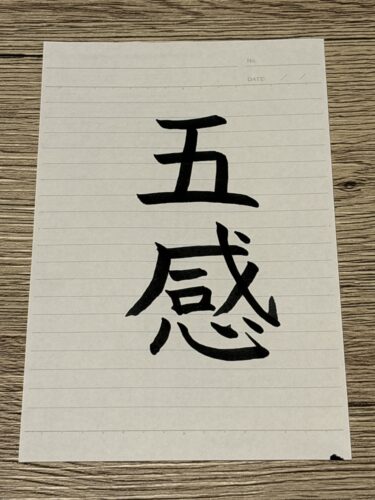 No.
DATE / /
五感